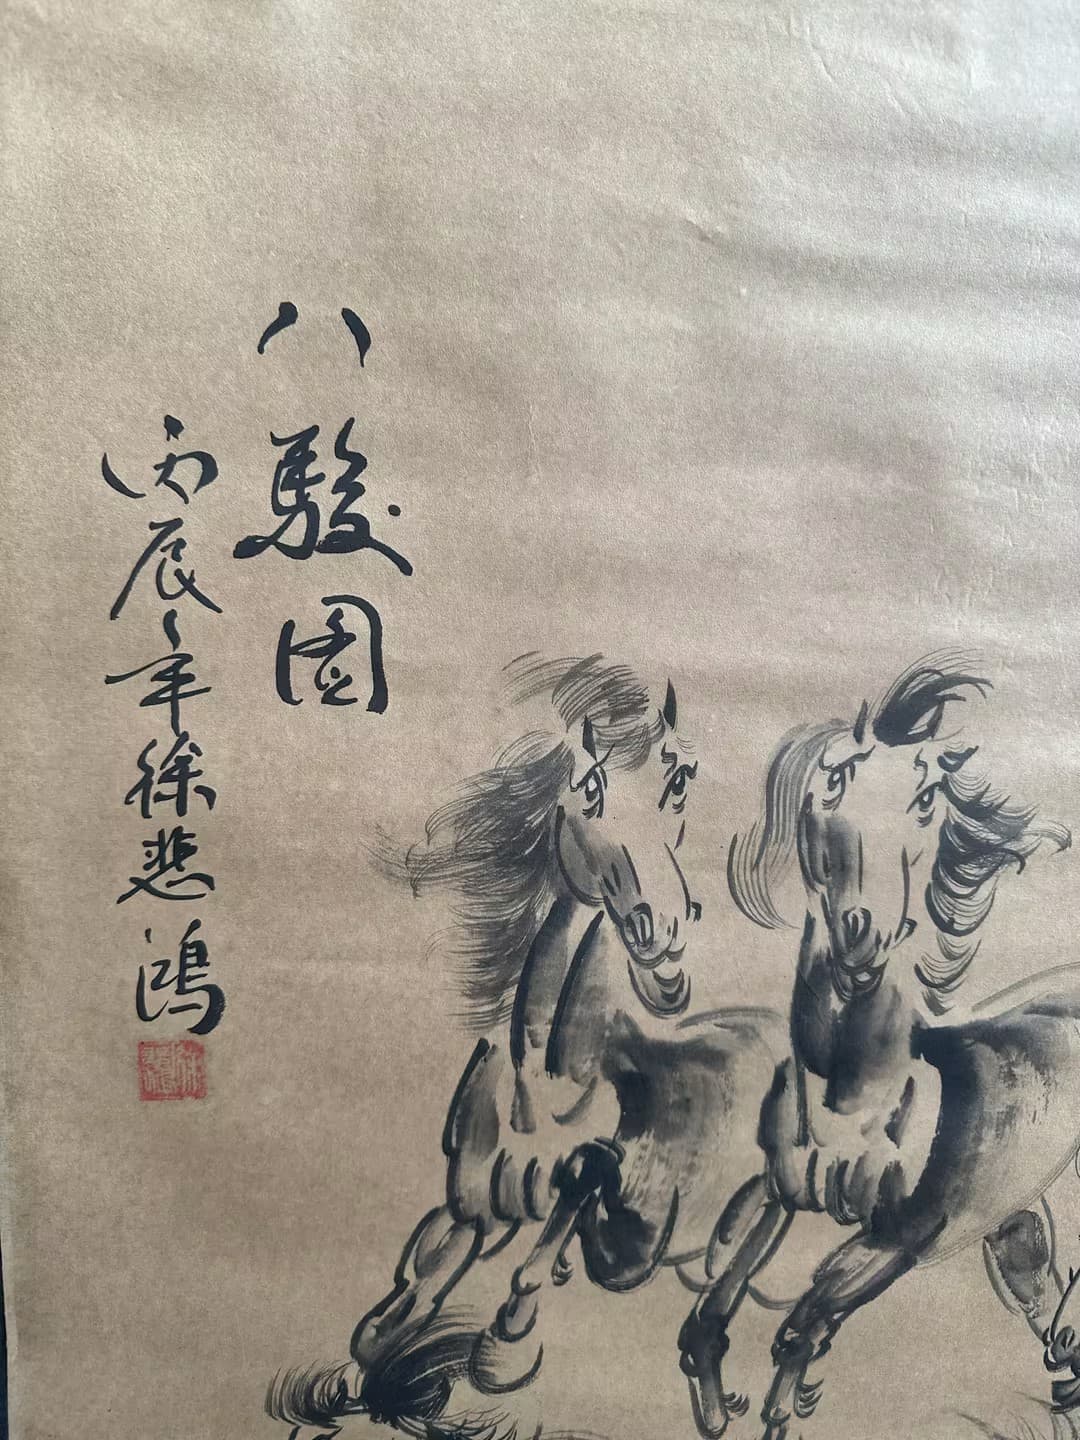 八駿圖
丙辰年徐悲鴻